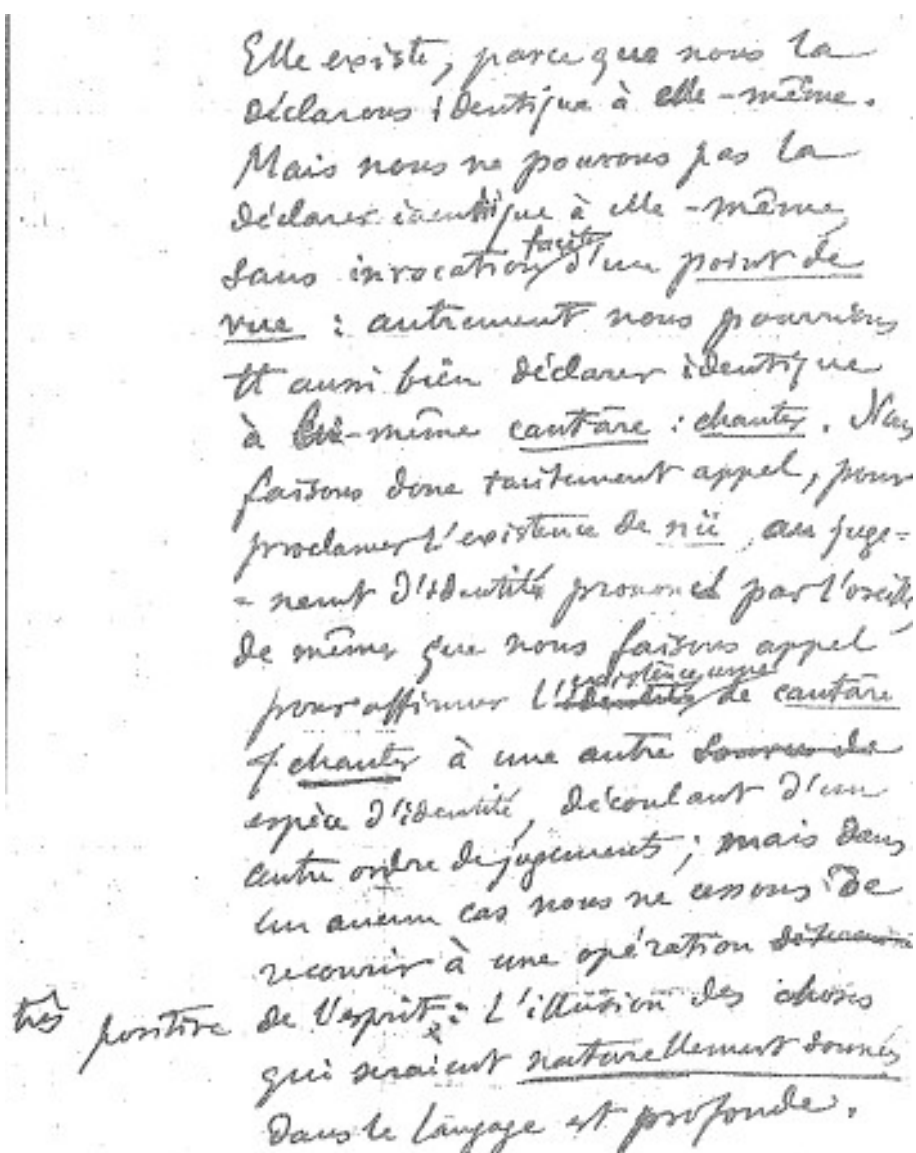 Elle existe, parce que nous la
déclarons identique à elle-même.
Mais nous ne pouvons pas la
déclarer identique à elle-même
sans invocation tacite d'un point de
vue : autrement nous pourrions
tt aussi bien déclarer identique
à lui-même cantāre : chanter. Nous
faisons donc tacitement appel, pour
proclamer l'existence de au juge-
-ment d'identité prononcé par l'oreille,
de même que nous faisons appel
pour affirmer l'identité existence une de cantāre
chanter à une autre source de
espèce d'identité, découlant d'un
autre ordre de jugements ; mais dans
un aucun cas nous ne cessons de
recourir à une opération
très positive de l'esprit : L'illusion des choses
qui seraient naturellement données
dans le langage est profonde.